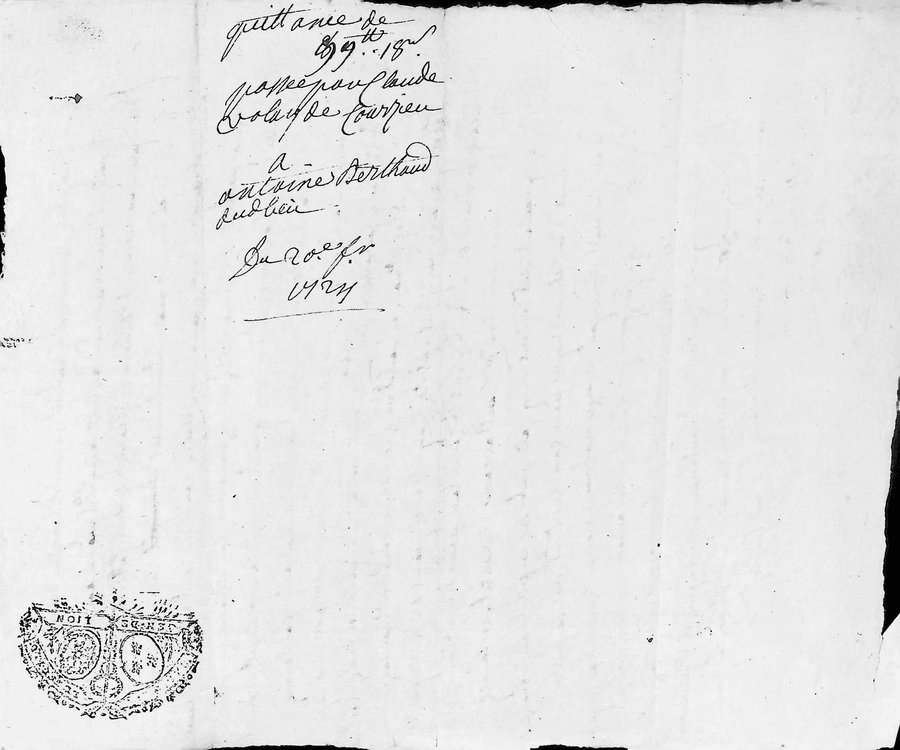 quittance de
899tt 18s
passée par Claude
de Courzieu
a
antoine Berthaud
dudlieu
Du 20e fr
1724